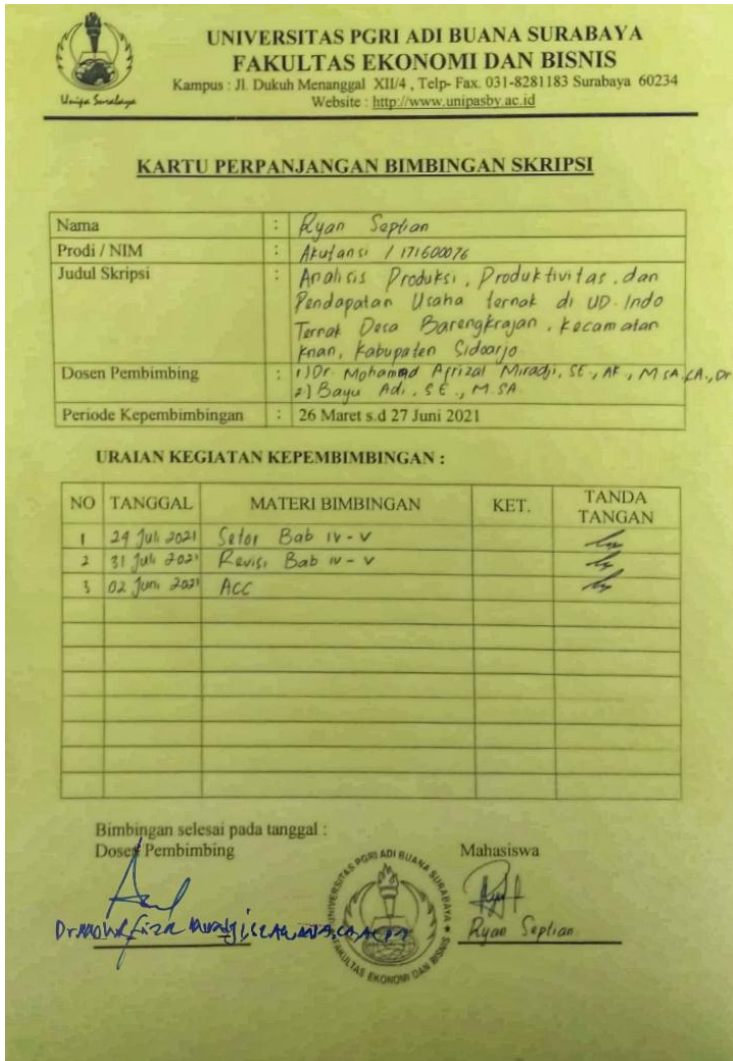 UNIVERSITAS PGRI ADI BUANA SURABAYA
FAKULTAS EKONOMI DAN BISNIS
Kampus : Jl. Dukuh Menanggal XII/4 , Telp- Fax. 031-8281183 Surabaya 60234
Website : http://www.unipasby.ac.id
Unipa Surabaya
KARTU PERPANJANGAN BIMBINGAN SKRIPSI
Nama : Ryan Septian
Prodi / NIM : Akutansi / 171600076
Judul Skripsi : Analisis Produksi, Produktivitas, dan
Pendapatan Usaha ternak di UD. Indo
Ternak Desa Barengkrajan, kecamatan
krian, Kabupaten Sidoarjo
Dosen Pembimbing : 1) Dr. Mohamad Afrizal Miradji, SE., AK., M SA. CA.,
2) Bayu Adi, SE., M.SA.
Periode Kepembimbingan : 26 Maret s.d 27 Juni 2021
URAIAN KEGIATAN KEPEMBIMBINGAN :
NO TANGGAL MATERI BIMBINGAN KET. TANDA TANGAN
1 29 Juli 2021 Setor Bab IV - V
2 31 Juli 2021 Revisi Bab IV - V
3 02 Juni 2021 ACC
Bimbingan selesai pada tanggal :
Dosen Pembimbing Mahasiswa
Ryan Septian
UNIVERSITAS PGRI ADI BUANA SURABAYA
FAKULTAS EKONOMI DAN BISNIS